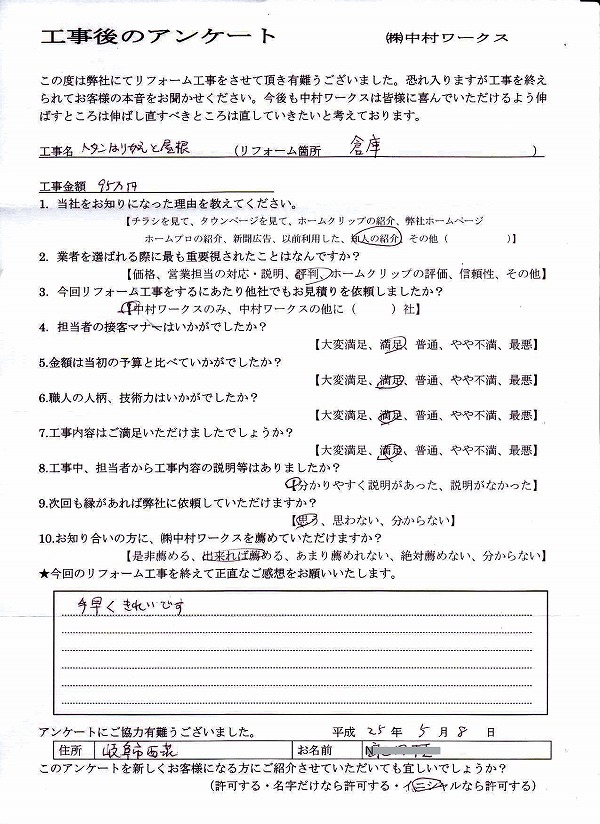 工事後のアンケート ㈱中村ワークス
この度は弊社にてリフォーム工事をさせて頂き有難うございました。恐れ入りますが工事を終え
られてお客様の本音をお聞かせください。今後も中村ワークスは皆様に喜んでいただけるよう伸
ばすところは伸ばし直すべきところは直していきたいと考えております。
工事名 トタンはりかえと屋根 (リフォーム箇所 倉庫 )
工事金額 95万円
1. 当社をお知りになった理由を教えてください。
【チラシを見て、タウンページを見て、ホームクリップの紹介、弊社ホームページ
ホームプロの紹介、新聞広告、以前利用した、知人の紹介、その他( )】
2. 業者を選ばれる際に最も重要視されたことはなんですか?
【価格、営業担当の対応・説明、評判、ホームクリップの評価、信頼性、その他】
3. 今回リフォーム工事をするにあたり他社でもお見積りを依頼しましたか?
【中村ワークスのみ、中村ワークスの他に( )社】
4. 担当者の接客マナーはいかがでしたか?
【大変満足、満足、普通、やや不満、最悪】
5.金額は当初の予算と比べていかがでしたか?
【大変満足、満足、普通、やや不満、最悪】
6.職人の人柄、技術力はいかがでしたか?
【大変満足、満足、普通、やや不満、最悪】
7.工事内容はご満足いただけましたでしょうか?
【大変満足、満足、普通、やや不満、最悪】
8.工事中、担当者から工事内容の説明等はありましたか?
【分かりやすく説明があった、説明がなかった】
9.次回も縁があれば弊社に依頼していただけますか?
【思う、思わない、分からない】
10.お知り合いの方に、㈱中村ワークスを薦めていただけますか?
【是非薦める、出来れば薦める、あまり薦めれない、絶対薦めない、分からない】
★今回のリフォーム工事を終えて正直なご感想をお願いいたします。
手早くきれいです
アンケートにご協力有難うございました。 平成 25 年 5 月 8 日
住所 岐阜市西荘 お名前 N
このアンケートを新しくお客様になる方にご紹介させていただいても宜しいでしょうか?
(許可する・名字だけなら許可する・イニシャルなら許可する)